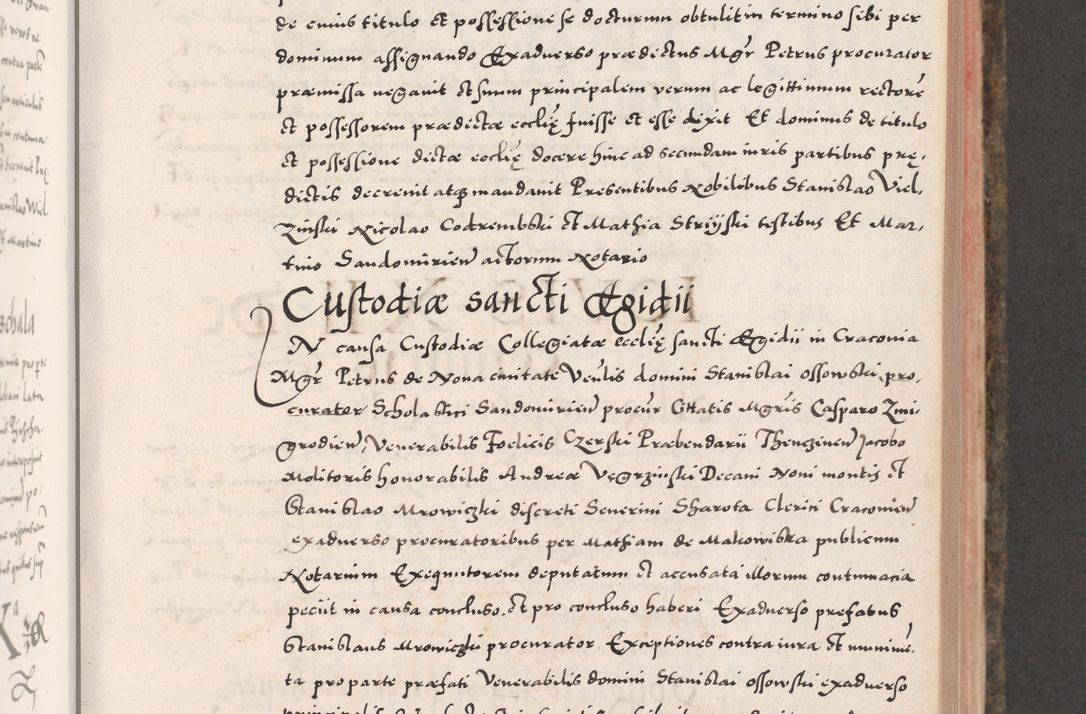 de cuius titulo et possessione se docturum obtulit in termino sibi per
dominum assignando Exaduerso prædictus Mgr Petrus procurator
præmissa negauit et suum principalem verum ac legittimum rectorē
et possessorem prædictæ ecclię fuisse et esse dixit Et dominus de titulo
et possessione dictæ ecclię docere hinc ad secundam iuris partibus prę,
dictis decreuit atq mandauit Presentibus Nobilibus Stanislao Viel,
zinski Nicolao Codrembski et Mathia Stryiski testibus Et Mar,
tino Sandomirien actorum Notario
Custodiæ sancti Ægidii
IN causa Custodiæ Collegiatæ ecclię sancti Ægidii in Cracouia
Mgr Petrus de Noua ciuitate Veñlis domini Stanislai ossowski pro,
curator Scholastici Sandomirien procur Cittatis Mgris Casparo Zmi,
grodien, Venerabilis Foelicis Czerski Præbendarii Thenczinen Jacobo
Molitoris honorabilis Andreæ Vęgrzinski Decani Noui montis et
Stanislao Mrowiczki discreti Seuerini Sharota Clerici Cracouien
exaduerso procuratoribus per Mathiam de Makowiska publicum
Notarium Exequutorem deputatum et accusata illorum contumacia
peciit in causa concluso, et pro concluso haberi Exaduerso prefatus
Stanislaus Mrowiczki procurator Exceptiones contra iura et munime,
ta pro parte præfati Venerabilis domini Stanislai ossowski exaduerso